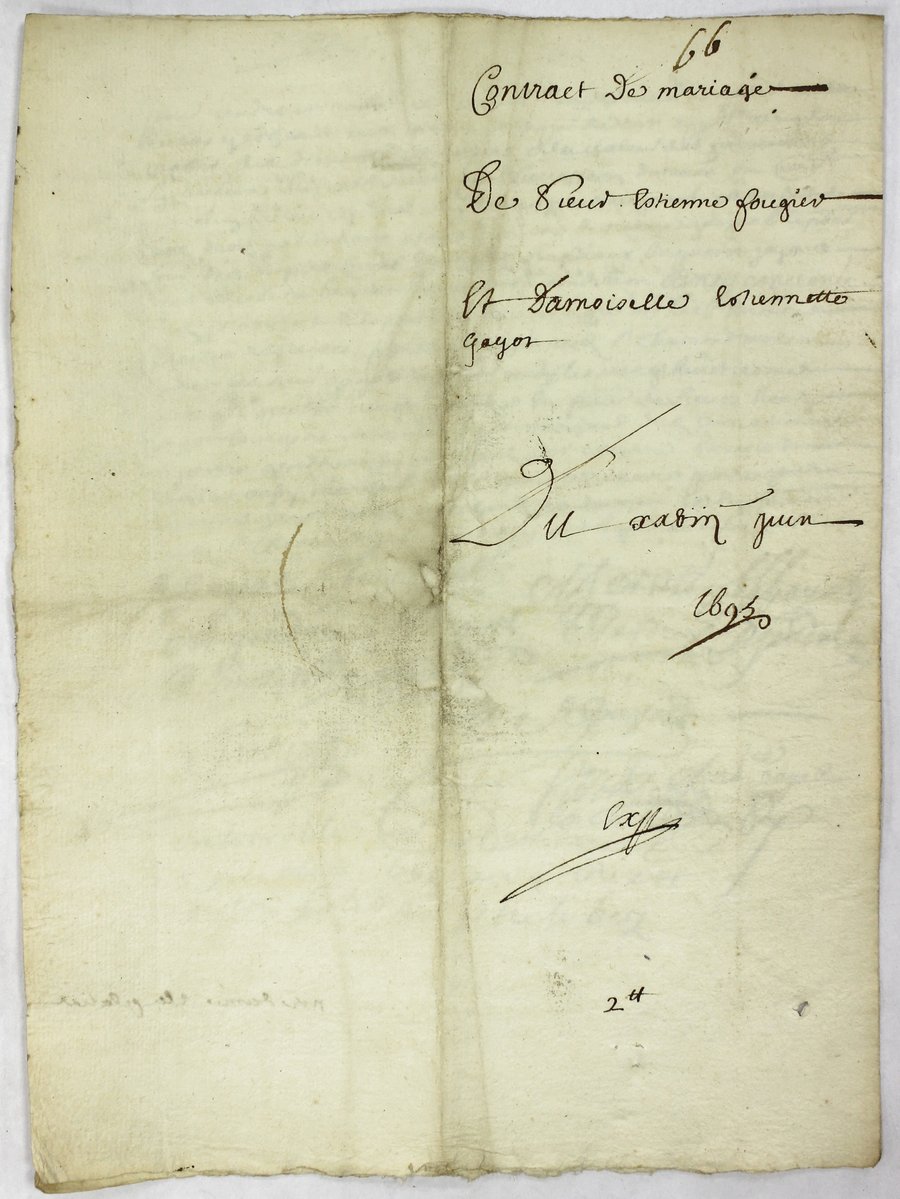 66
Contract De mariage
De Sieur Estienne fougier
Et Damoiselle Estiennette
gayot
Du xxviii juin
1695
Exp
2 tt